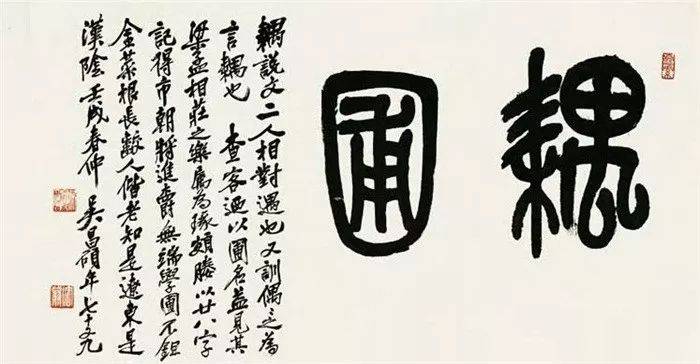 耦圃
耦說文二人相對遇也又訓偶之為
言耦也 查客迺以圃名益見其
梁孟相莊之樂屬為琢額媵以廿八字
記得市朝將進爵無端學圃不鉏
金菜根長齩人偕老知是遼東是
漢陰壬戌春仲 吳昌碩年七十九